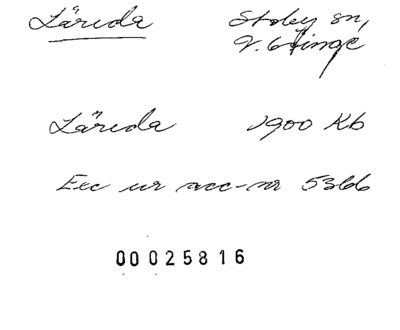 Läreda Stoby sn,
V. Göinge
Läreda 1900 Kb
Exc ur acc-nr 5366
00025816